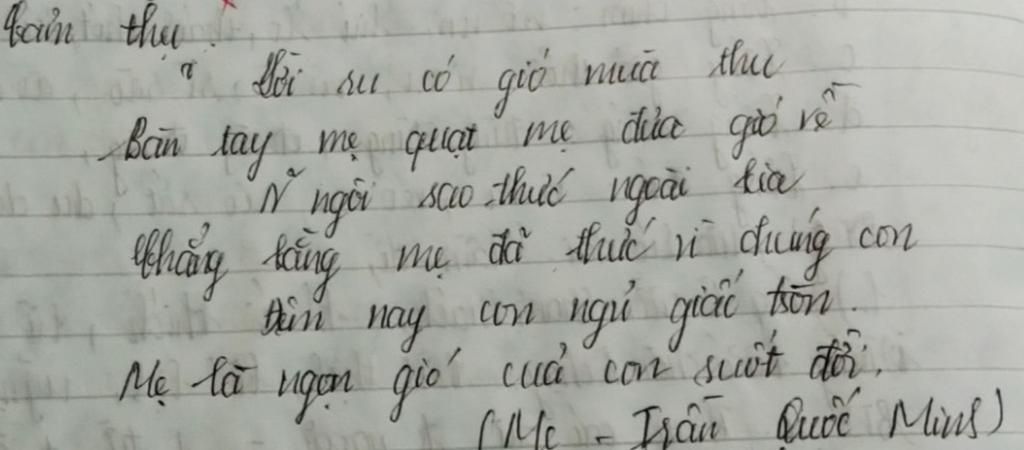 bàn thụ.
" Lời ru có gió mùa thu
Bàn tay mẹ quạt mẹ đưa gió về
N~ ngôi sao thức ngoài kia
Chẳng bằng mẹ đã thức vì chúng con
Đêm nay con ngủ giấc tròn.
Mẹ là ngọn gió của con suốt đời.
(Mẹ - Trần Quốc Minh)